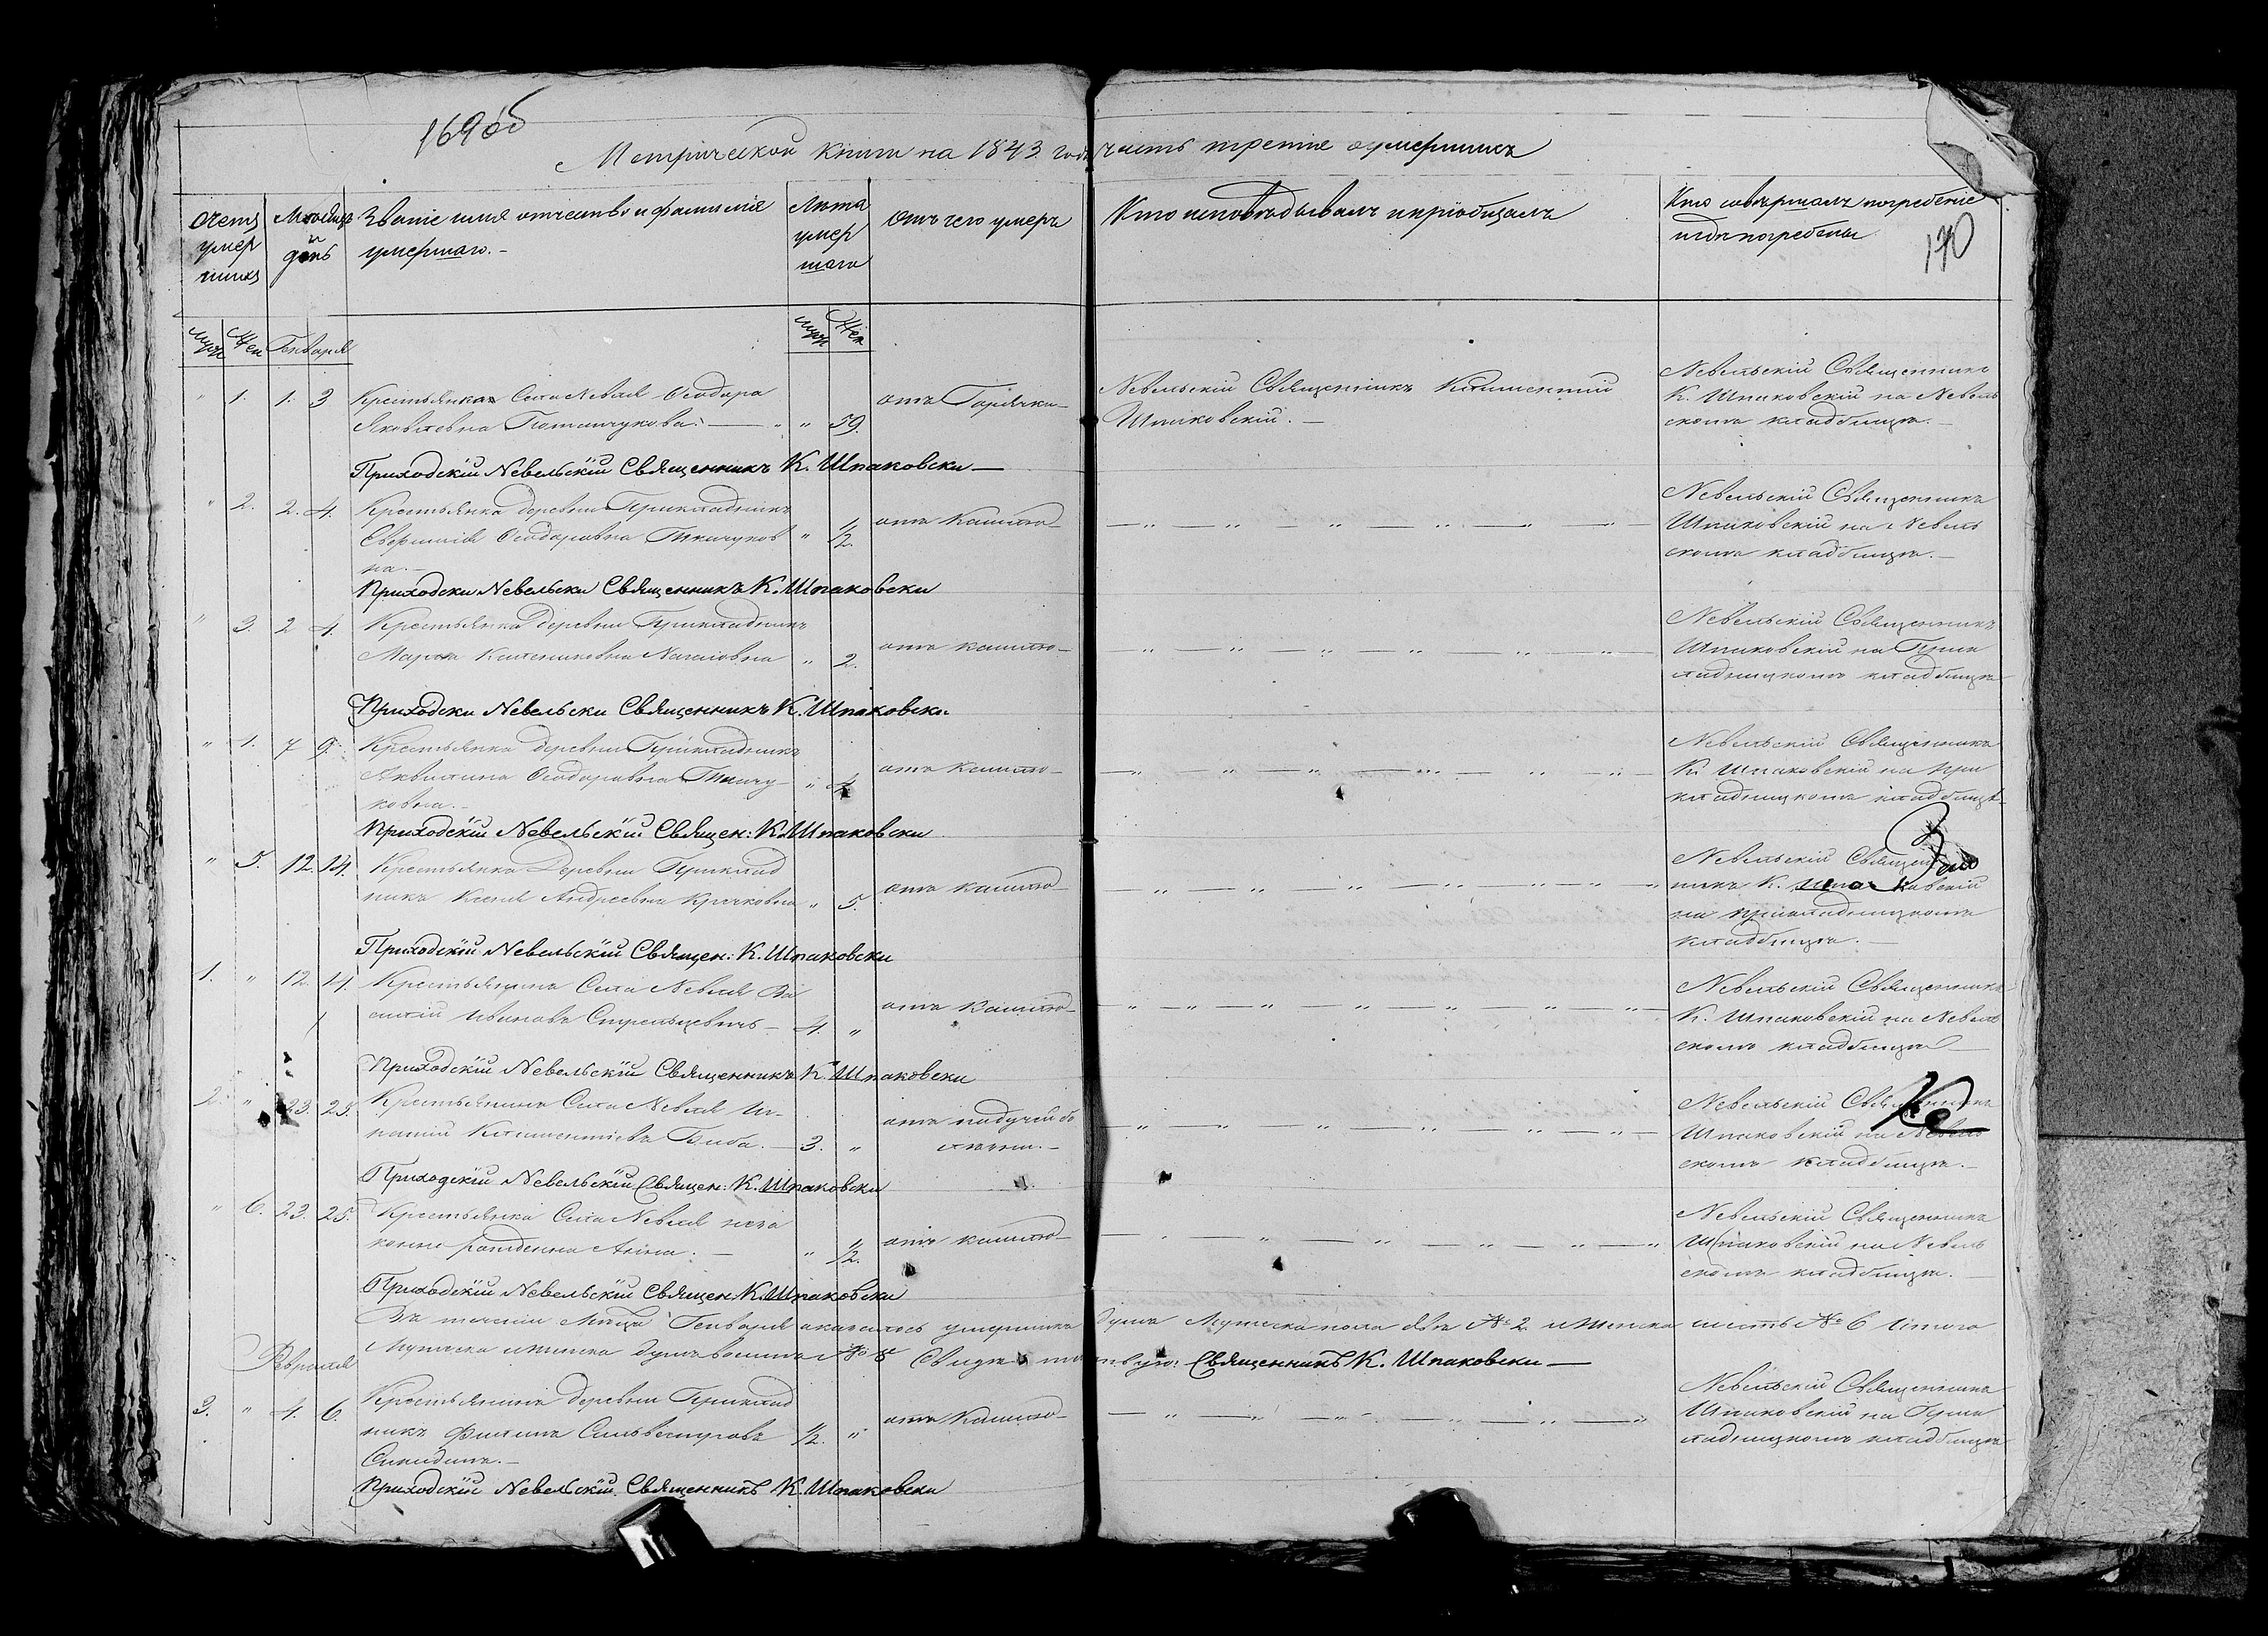 169 об
Метрической книги на 1843 годъ часть третія о умершихъ
170
Счетъ умершихъ
Месяцъ и день
Званіе имя отчество и фамилія умершаго.
Лѣта умершаго
отъ чего умеръ
Кто исповѣдывалъ и пріобщалъ
Кто совершалъ погребеніе и гдѣ погребены
Муж Жен Генваря
Муж Жен
" 1. 1. 3 Крестьянка Села Невля Ѳеодора
Яковлевна Потапчукова. — " 59.
отъ Горячки
Невельскій Священникъ Климентий
Шпаковскій.
Невельскій Священникъ
К. Шпаковскій на Невель
скомъ кладбищѣ.
Приходскій Невельскій Священникъ К. Шпаковски
" 2. 2. 4. Крестьянка деревни Прикладникъ
Ѳеодоровна Ткачуков
на. " 1/2.
отъ Кашлю
Невельскій Священникъ
Шпаковскій на Невель
скомъ кладбищѣ.
Приходски Невельски Священникъ К. Шпаковски
" 3. 2 4. Крестьянка деревни Прикладникъ
Марѳа " 2.
отъ кашлю
Невельскій Священникъ
Шпаковскій на Прик
ладницкомъ кладбищѣ
Приходски Невельски Священникъ К. Шпаковски
" 4. 7 9. Крестьянка деревни Прикладникъ
Акилина Ѳеодоровна Ткачу-
ковна. " 4
отъ Кашлю
Невельскій Священникъ
К. Шпаковскій на при
кладницкомъ кладбищѣ
Приходскій Невельскій Священ: К. Шпаковски
" 5. 12. 14. Крестьянка Деревни Приклад
никъ Ксенія Андреевна Крычковна " 5.
отъ кашлю
Невельскій Священ
никъ К. Шпаковскій
на прикладницкомъ
кладбищѣ.
Приходскій Невельскій Священ: К. Шпаковски
1. " 12. 14. Крестьянинъ Села Невля Ва
силій Ивановъ Стрельцевичъ — 4. "
отъ Кашлю
Невельскій Священникъ
К. Шпаковскій на Невель
скомъ кладбищѣ
Приходскій Невельскій Священникъ К. Шпаковски
2. " 23. 25. Крестьянинъ Села Невля Иг-
натій Климентіевъ Биба. 3. "
отъ падучей бо
лѣзни.
Невельскій Священникъ
Шпаковскій на Невель
скомъ кладбищѣ.
Приходскій Невельскій Священ: К. Шпаковски
" 6. 23. 25. Крестьянка Села Невля неза
конно рожденна Анна. " 1/2.
отъ кашлю
Невельскій Священникъ
Шпаковскій на Невель
скомъ кладбищѣ.
Приходскій Невельскій Священ К. Шпаковски
Въ теченіи Мѣца Генваря оказалось умершихъ душъ Мужеска пола двѣ № 2. и Женска шесть № 6 Итого
Мужеска и женска душъ восемь № 8 Священникъ К. Шпаковски
Февраля
3. " 4. 6. Крестьянинъ деревни Приклад
никъ Филипъ Сильвестровъ 1/2. "
отъ Кашлю
Невельскій Священникъ
Шпаковскій на Прик
ладницкомъ кладбищѣ
Приходскій Невельскій Священникъ К. Шпаковски